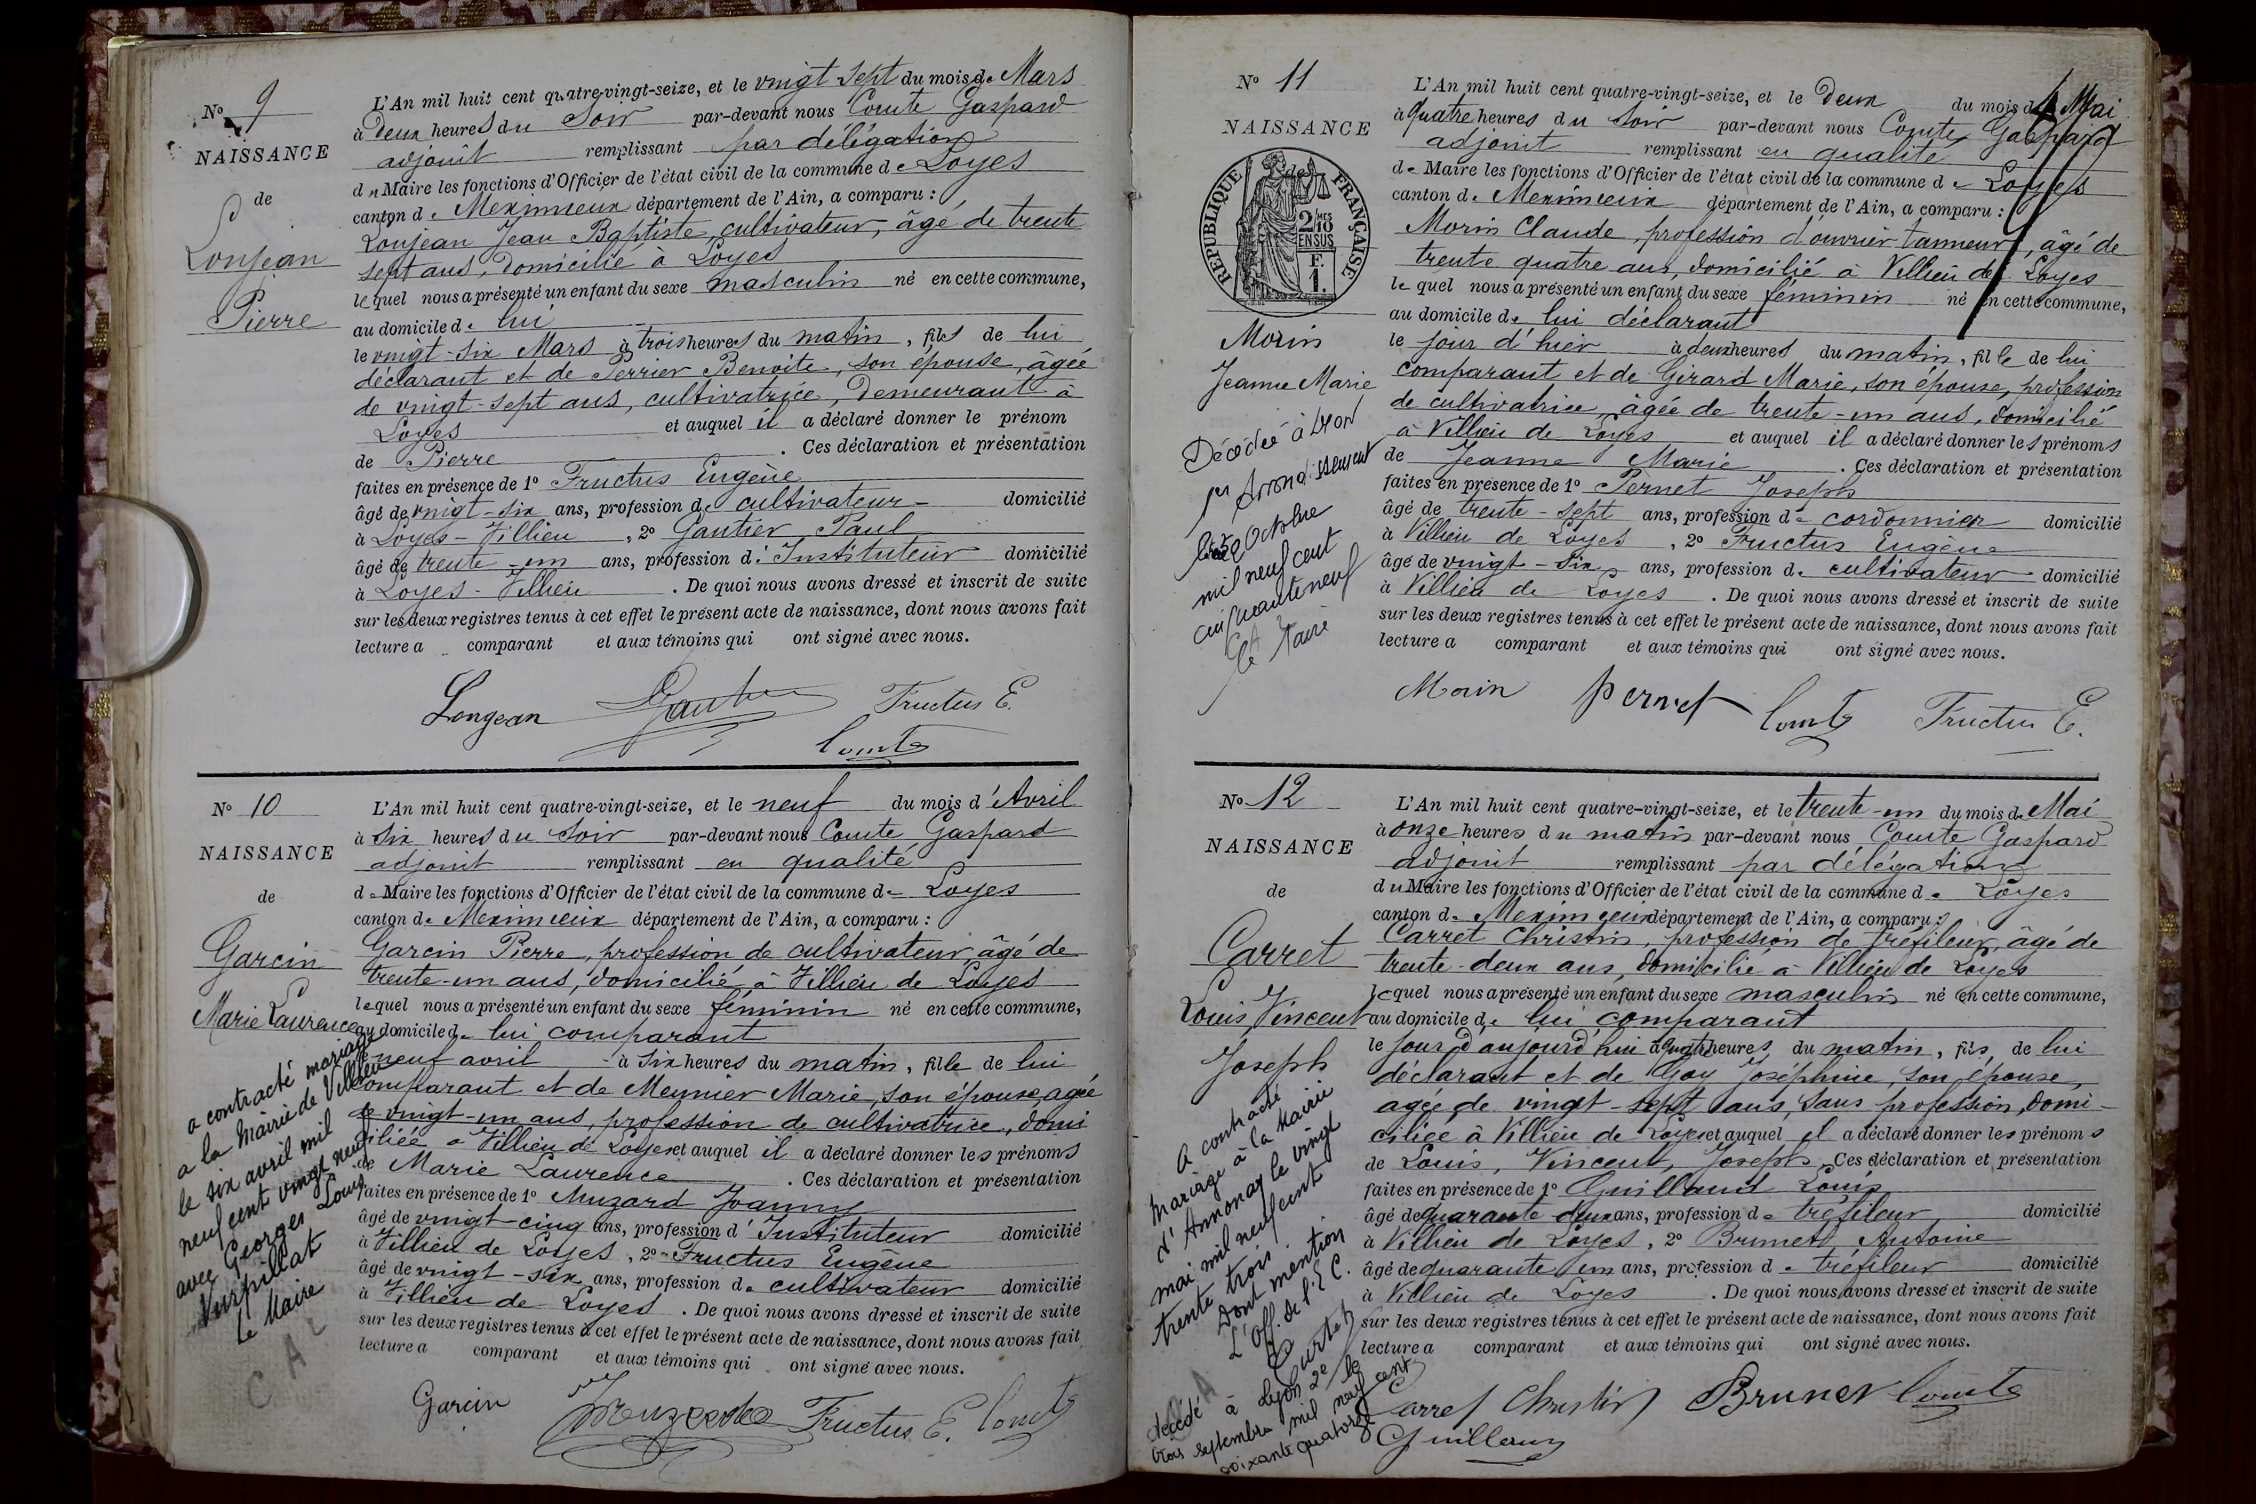 N° 9
NAISSANCE
de
Lonjean
Pierre
L'An mil huit cent quatre-vingt-seize, et le vingt sept du mois de Mars
à deux heures du soir par-devant nous Comte Gaspard
adjoint remplissant par délégation
du Maire les fonctions d'Officier de l'état civil de la commune de Loyes
canton de Meximieux département de l'Ain, a comparu :
Lonjean Jean Baptiste, cultivateur, âgé de trente
sept ans, domicilié à Loyes
lequel nous a présenté un enfant du sexe masculin né en cette commune,
au domicile de lui
le vingt-six Mars à trois heures du matin, fils de lui
déclarant et de Perrier Benoite, son épouse, âgée
de vingt-sept ans, cultivatrice, demeurant à
Loyes et auquel il a déclaré donner le prénom
de Pierre . Ces déclaration et présentation
faites en présence de 1° Fructus Eugène
âgé de vingt-six ans, profession de cultivateur domicilié
à Loyes-Villieu, 2° Gautier Paul
âgé de trente-un ans, profession d'Instituteur domicilié
à Loyes-Villieu . De quoi nous avons dressé et inscrit de suite
sur les deux registres tenus à cet effet le présent acte de naissance, dont nous avons fait
lecture a comparant et aux témoins qui ont signé avec nous.
Longean Gautier Fructus E.
Comte
N° 10
NAISSANCE
de
Garcin
Marie Laurence
a contracté mariage
a la Mairie de Villieu
le six avril mil
neuf cent vingt neuf
avec Georges Louis
Vurpillat
Le Maire
C A
L'An mil huit cent quatre-vingt-seize, et le neuf du mois d'Avril
à six heures du soir par-devant nous Comte Gaspard
adjoint remplissant en qualité
de Maire les fonctions d'Officier de l'état civil de la commune de Loyes
canton de Meximieux département de l'Ain, a comparu :
Garcin Pierre, profession de cultivateur âgé de
trente-un ans, domicilié à Villieu de Loyes
lequel nous a présenté un enfant du sexe féminin né en cette commune,
au domicile de lui comparant
le neuf avril à six heures du matin, fille de lui
comparant et de Meunier Marie, son épouse, agée
de vingt-un ans, profession de cultivatrice, domi
ciliée à Villieu de Loyes et auquel il a déclaré donner les prénoms
de Marie Laurence . Ces déclaration et présentation
faites en présence de 1° Muzard Joanny
âgé de vingt-cinq ans, profession d'Instituteur domicilié
à Villieu de Loyes, 2° Fructus Eugène
âgé de vingt-six ans, profession de cultivateur domicilié
à Villieu de Loyes . De quoi nous avons dressé et inscrit de suite
sur les deux registres tenus à cet effet le présent acte de naissance, dont nous avons fait
lecture a comparant et aux témoins qui ont signé avec nous.
Garcin Fructus E. Comte
N° 11
NAISSANCE
RÉPUBLIQUE FRANÇAISE
2/10
EN SUS
F.
1.
Morin
Jeanne Marie
Décédée à Lyon
1er Arrondissement
Octobre
mil neuf cent
cinquante neuf
Le Maire
L'An mil huit cent quatre-vingt-seize, et le deux du mois de Mai
à quatre heures du soir par-devant nous Comte Gaspard
adjoint remplissant en qualité
de Maire les fonctions d'Officier de l'état civil de la commune de Loyes
canton de Meximieux département de l'Ain, a comparu :
Morin Claude, profession d'ouvrier tanneur, âgé de
trente quatre ans, domicilié à Villieu de Loyes
lequel nous a présenté un enfant du sexe féminin né en cette commune,
au domicile de lui déclarant
le jour d'hier à deux heures du matin, fille de lui
comparant et de Girard Marie, son épouse, profession
de cultivatrice, âgée de trente-un ans, domicilié
à Villieu de Loyes et auquel il a déclaré donner les prénoms
de Jeanne Marie . Ces déclaration et présentation
faites en présence de 1° Pernet Joseph
âgé de trente-sept ans, profession de cordonnier domicilié
à Villieu de Loyes, 2° Fructus Eugène
âgé de vingt-six ans, profession de cultivateur domicilié
à Villieu de Loyes . De quoi nous avons dressé et inscrit de suite
sur les deux registres tenus à cet effet le présent acte de naissance, dont nous avons fait
lecture a comparant et aux témoins qui ont signé avec nous.
Morin Pernet Comte Fructus E.
N° 12
NAISSANCE
de
Carret
Louis Vincent
Joseph
A contracté
Mariage à la Mairie
d'Annonay le vingt
mai mil neuf cent
trente trois.
Dont mention
L'Off. de l'E.C.
décédé à Lyon 2e le
trois septembre mil neuf cent
soixante quatorze
L'An mil huit cent quatre-vingt-seize, et le trente-un du mois de Mai
à onze heures du matin par-devant nous Comte Gaspard
adjoint remplissant par délégation
du Maire les fonctions d'Officier de l'état civil de la commune de Loyes
canton de Meximieux département de l'Ain, a comparu :
Carret Christin, profession de tréfileur, âgé de
trente-deux ans, domicilié à Villieu de Loyes
lequel nous a présenté un enfant du sexe masculin né en cette commune,
au domicile de lui comparant
le jour d'aujourd'hui à quatre heures du matin, fils de lui
déclarant et de Goy Joséphine, son épouse,
agée de vingt-sept ans, sans profession, domi-
ciliée à Villieu de Loyes et auquel il a déclaré donner les prénoms
de Louis, Vincent, Joseph. Ces déclaration et présentation
faites en présence de 1° Guillaud Louis
âgé de quarante deux ans, profession de tréfileur domicilié
à Villieu de Loyes, 2° Brunet Antoine
âgé de quarante un ans, profession de tréfileur domicilié
à Villieu de Loyes . De quoi nous avons dressé et inscrit de suite
sur les deux registres tenus à cet effet le présent acte de naissance, dont nous avons fait
lecture a comparant et aux témoins qui ont signé avec nous.
Carret Christin Brunet Comte